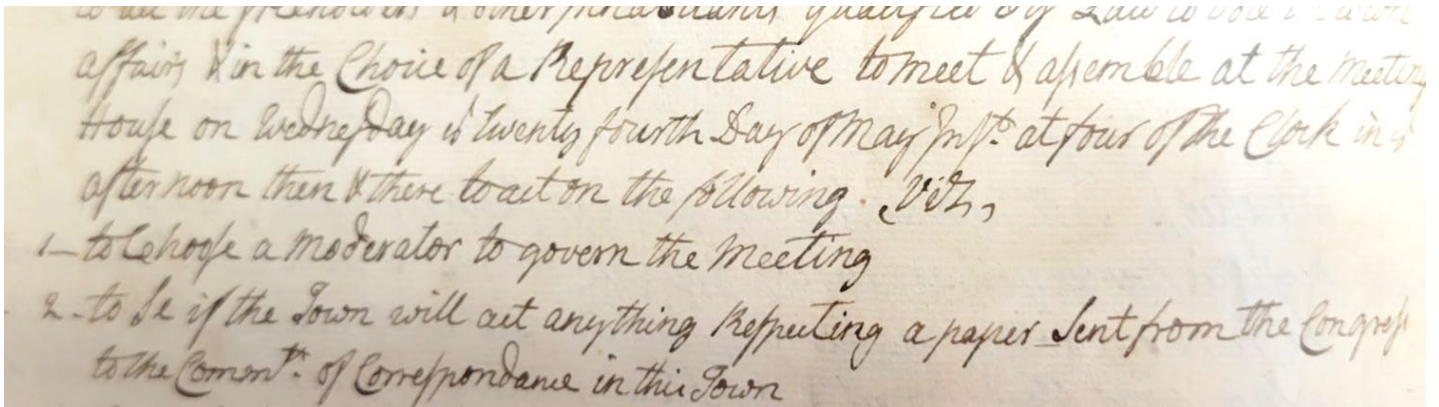 to all the freeholders & other inhabitants qualified by Law to vote in Town
affairs & in the Choice of a Representative to meet & assemble at the Meeting
House on Wednesday ye twenty fourth Day of May Inst. at four of the Clock in ye
afternoon then & there to act on the following. Vidz,
1 – to Choose a Moderator to govern the Meeting
2 – to Se if the Town will act anything Respecting a paper Sent from the Congress
to the of Correspondance in this Town